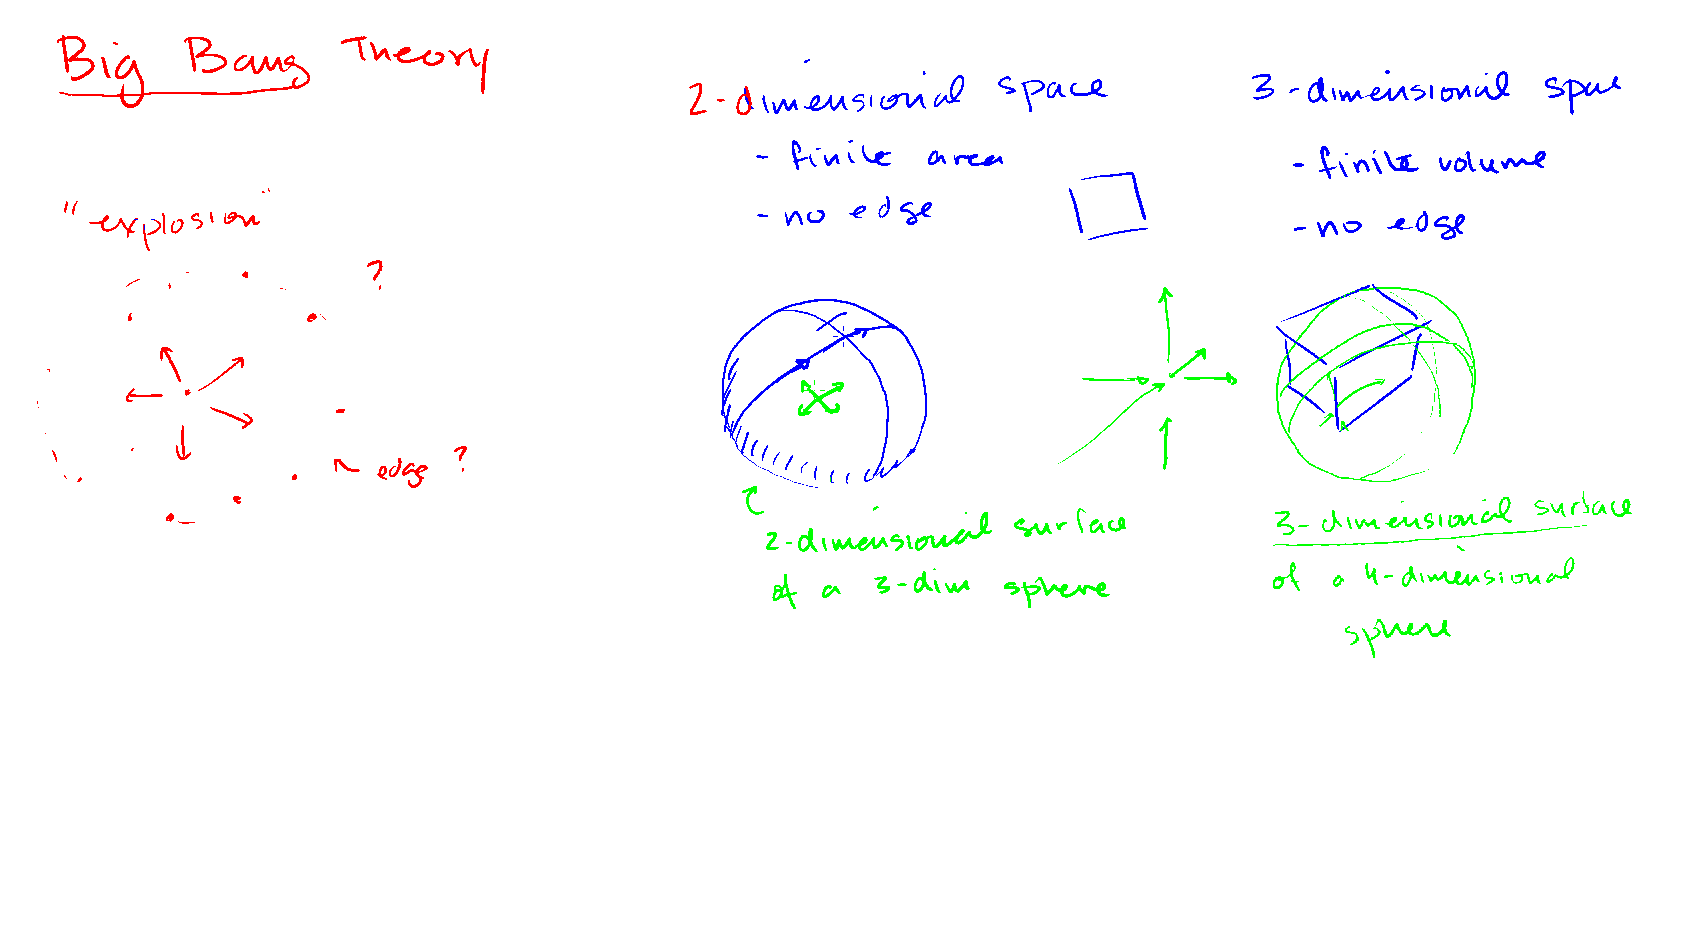 Big Bang Theory
"explosion"
?
edge ?
2-dimensional space
- finite area
- no edge
2-dimensional surface
of a 3-dim sphere
3-dimensional space
- finite volume
- no edge
3-dimensional surface
of a 4-dimensional
sphere